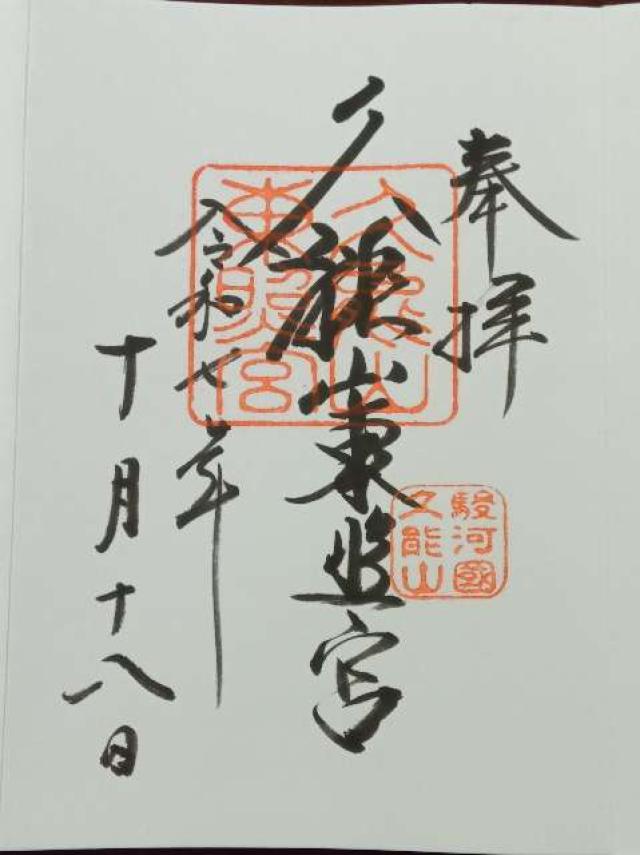 奉拝
久能山東照宮
令和七年
十月十八日
久能山
東照宮
駿河國
久能山